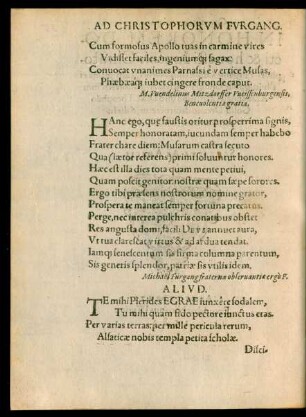 AD CHRISTOPHORVM FVRGANG.
Cum formosus Apollo tuas in carmine vires
Vidisset faciles, ingeniumq; sagax:
Conuocat vnanimes Parnassi è vertice Musas,
Phœbæaq; iubet cingere fronde caput.
M. Vuendelinus Mitzdorffer
Beneuolentiæ gratia.
HAnc ego, quę faustis oritur prosperrima signis,
Semper honoratam, iucundam semper habebo
Frater chare diem: Musarum castra secuto
Qua (lætor referens) primi soluuntur honores.
Hæc est illa dies tota quam mente petiui,
Quam poscit genitor nostræ quam sæpe sorores.
Ergo tibi præsens nostrorum nomine grator,
Prospera te maneat semper fortuna precatus.
Perge, nec interea pulchris conatibus obstet
Res angusta domi, facili DEVS annuet aura,
Vt tua clarescat virtus & ad ardua tendat.
Iamq; senescentum sis firma columna parentum,
Sis generis splendor, patriæ sis vtilis idem.
Michael Furgang fraternæ obseruantiæ ergò F.
ALIVD.
TE mihi Pierides EGRAE iunxêre sodalem,
Tu mihi quàm fido pectore iunctus eras.
Per varias terras: per mille pericula rerum,
Alsaticæ nobis templa petita scholæ.
Disci-